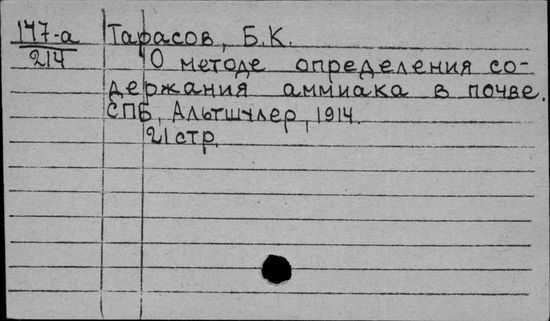 147-а
214
Тарасов, Б.К.
О методе определения со-
держания аммиака в почве.
СПБ, Альтшулер, 1914.
21 стр.